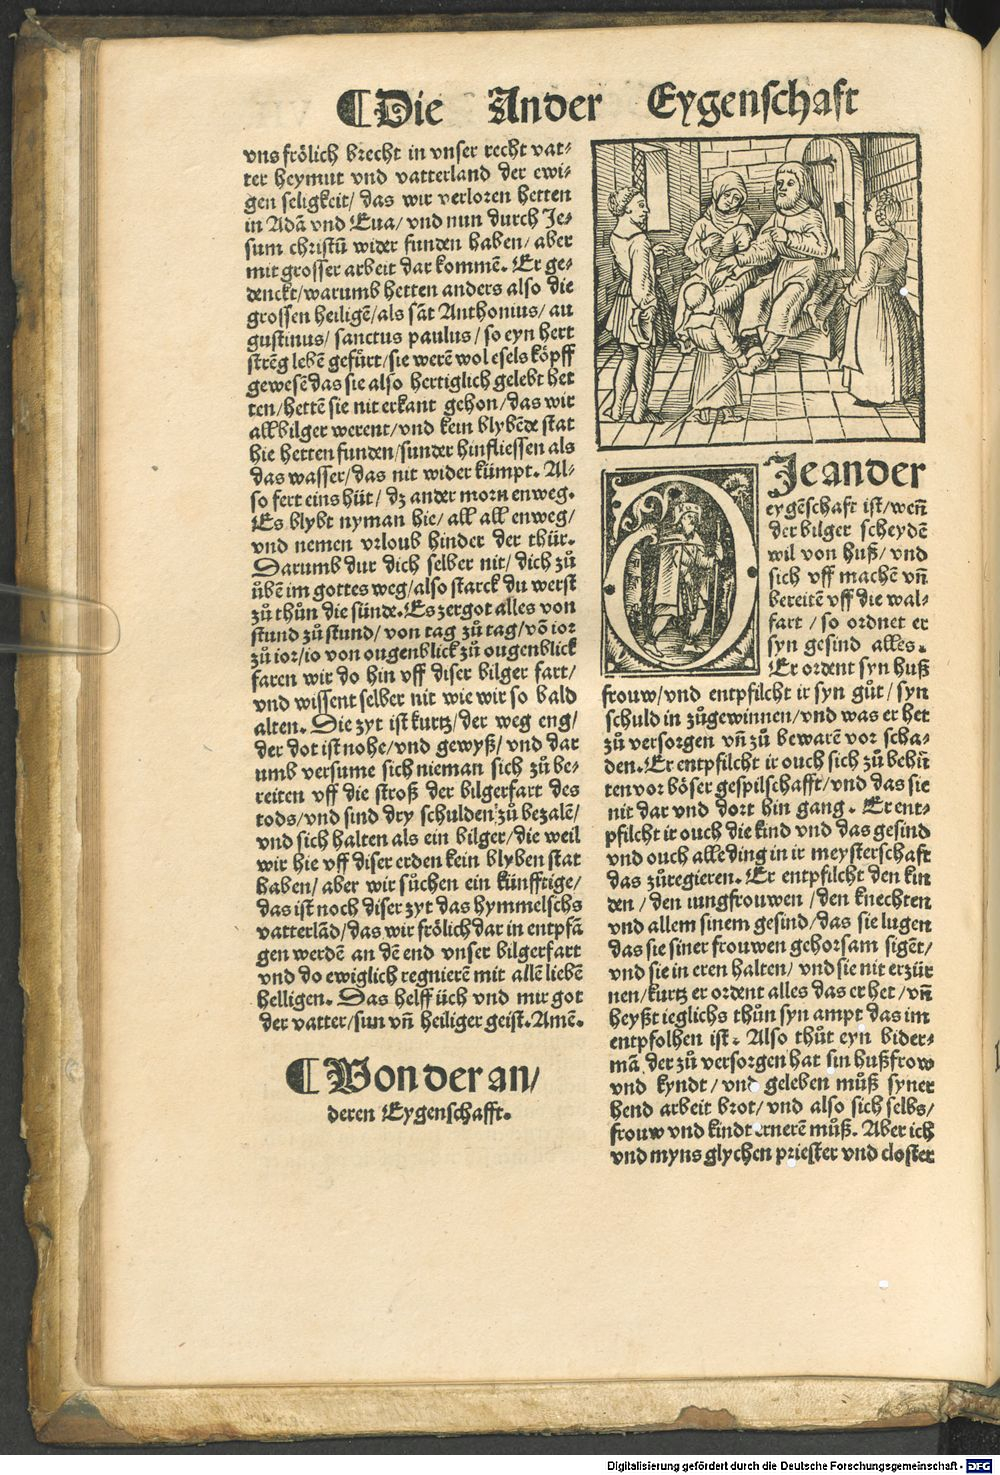 ¶Die Ander Eygenschaft
vns frölich brecht in vnser recht vat-
ter heymut vnd vatterland der ewi-
gen seligkeit/ das wir verloren hetten
in Adā vnd Eua/ vnd nun durch Je-
sum christū wider funden haben/ aber
mit grosser arbeit dar kommē. Er ge-
denckt/warumb hetten anders also die
grossen heiligē/als sāt Anthonius/ au
gustinus/ sanctus paulus/ so eyn hert
strēg lebē gefůrt/sie werē wol esels köpff
gewesē das sie also hertiglich gelebt het
ten/hettē sie nit erkant gehon/das wir
all bilger werent/vnd kein blybēde stat
hie hetten funden/sunder hinfliessen als
das wasser/das nit wider kümpt. Al-
so fert eins hüt/ dz ander morn enweg.
Es blybt nyman hie/ all all enweg/
vnd nemen vrloub hinder der thür.
Darumb dur dich selber nit/ dich zů
übē im gottes weg/also starck du werst
zů thůn die sünde. Es zergot alles von
stund zů stund/ von tag zů tag/vō ior
zů ior/io von ougenblick zů ougenblick
faren wir do hin vff diser bilger fart/
vnd wissent selber nit wie wir so bald
alten. Die zyt ist kurtz/der weg eng/
der dot ist nohe/vnd gewyß/vnd dar
umb versume sich nieman sich zů be-
reiten vff die stroß der bilgerfart des
tods/vnd sind dry schulden zů bezalē/
vnd sich halten als ein bilger/die weil
wir hie vff diser erden kein blyben stat
haben/ aber wir sůchen ein künfftige/
das ist noch diser zyt das hymmelschs
vatterlād/das wir frölich dar in entpfā
gen werdē an dē end vnser bilgerfart
vnd do ewiglich regnierē mit allē liebē
helligen. Das helff üch vnd mir got
der vatter/sun vn̄ heiliger geist. Amē.
¶Von der an/
deren Eygenschafft.
DJe ander
eygēschaft ist/wen̄
der bilger scheydē
wil von huß/ vnd
sich vff machē vn̄
bereitē vff die wal-
fart / so ordnet er
syn gesind alles.
Er ordent syn huß
frouw/vnd entpfilcht ir syn gůt/ syn
schuld in zůgewinnen/vnd was er het
zů versorgen vn̄ zů bewarē vor scha-
den. Er entpfilcht ir ouch sich zů behü
ten vor böser gespilschafft/vnd das sie
nit dar vnd dort hin gang. Er ent-
pfilcht ir ouch die kind vnd das gesind
vnd ouch alle ding in ir meysterschaft
das zůregieren. Er entpfilcht den kin
den/ den iungfrouwen /den knechten
vnd allem sinem gesind/das sie lugen
das sie siner frouwen gehorsam sigēt/
vnd sie in eren halten/ vnd sie nit erzür
nen/kurtz er ordent alles das er het/vn̄
heyßt ieglichs thůn syn ampt das im
entpfolhen ist. Also thůt eyn bider-
mā der zů versorgen hat sin hußfrow
vnd kyndt/ vnd geleben můß syner
hend arbeit brot/vnd also sich selbs/
frouw vnd kindt ernerē můß. Aber ich
vnd myns glychen priester vnd closter
Digitalisierung gefördert durch die Deutsche Forschungsgemeinschaft - DFG